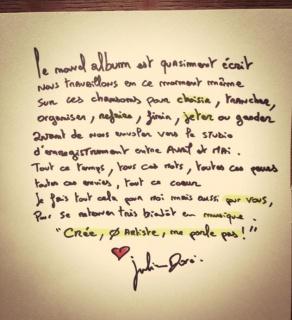 Le nouvel album est quasiment écrit
Nous travaillons en ce moment même
sur ces chansons pour choisir, trancher,
organiser, refaire, finir, jeter ou garder
avant de nous envoler vers le studio
d'enregistrement entre Avril et Mai.
Tout ce temps, tous ces mots, toutes ces peurs
toutes ces envies, tout ce coeur
Je fais tout cela pour moi mais aussi pour vous,
Pour se retrouver très bientôt en musique.
"Crée, Ô Artiste, ne parle pas!"
Julien Doré.